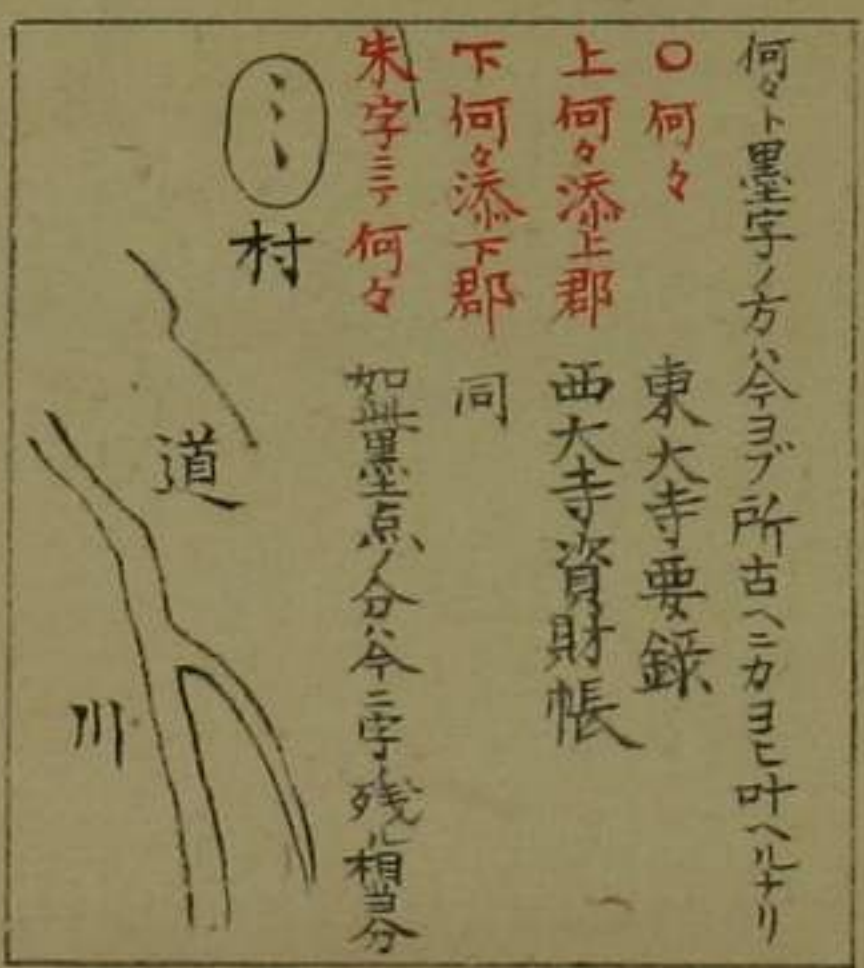 何々ト墨字ノ方ハ今ヨブ所古ヘニカヨヒ叶ヘルナリ
〇何々 東大寺要錄
上何々添上郡 西大寺資財帳
下何々添下郡 同
朱字ニテ何々 如此墨点ノ分ハ今ニ字残ル相当分
村
道
川